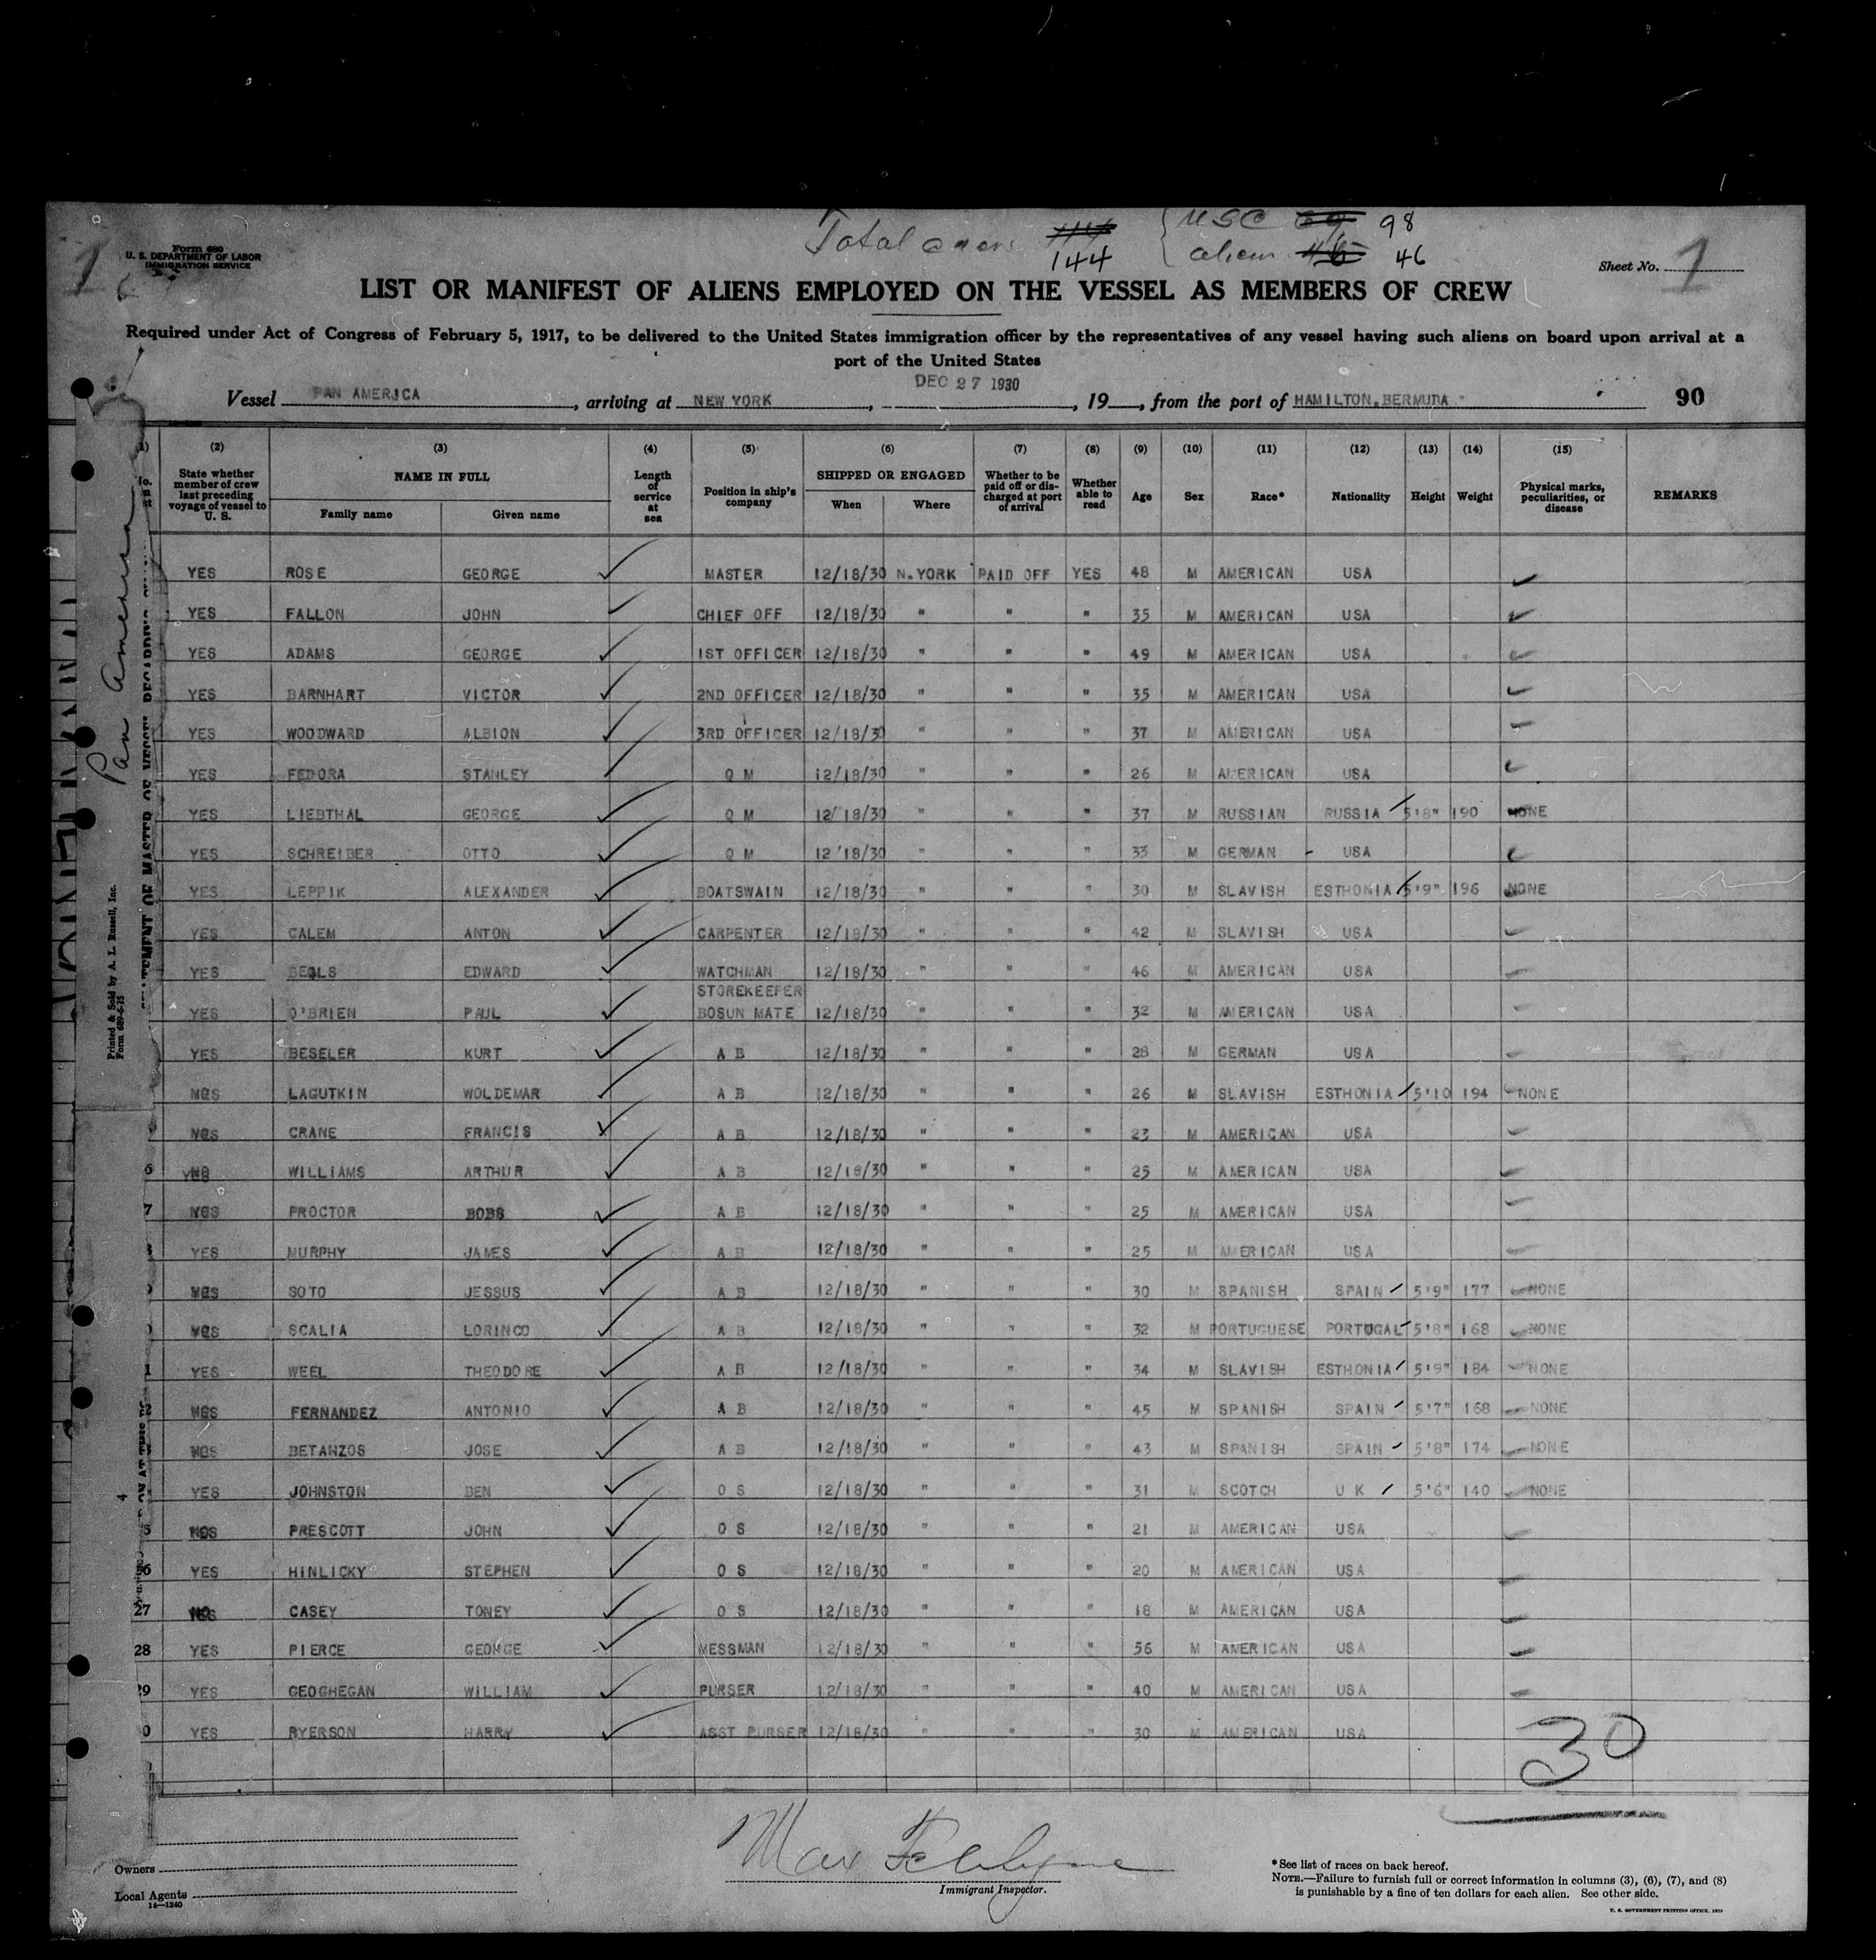 Total crew 114 { USC 69 98
144 { alien 46 46
1
Form 689
U. S. DEPARTMENT OF LABOR
IMMIGRATION SERVICE
Sheet No. 1
LIST OR MANIFEST OF ALIENS EMPLOYED ON THE VESSEL AS MEMBERS OF CREW
Required under Act of Congress of February 5, 1917, to be delivered to the United States immigration officer by the representatives of any vessel having such aliens on board upon arrival at a
port of the United States
DEC 27 1930
Vessel PAN AMERICA, arriving at NEW YORK, , 19 , from the port of HAMILTON, BERMUDA 90
(2) (3) (4) (5) (6) (7) (8) (9) (10) (11) (12) (13) (14) (15)
State whether member of crew last preceding voyage of vessel to U. S. NAME IN FULL Family name Given name Length of service at sea Position in ship's company SHIPPED OR ENGAGED When Where Whether to be paid off or discharged at port of arrival Whether able to read Age Sex Race* Nationality Height Weight Physical marks, peculiarities, or disease REMARKS
YES ROSE GEORGE MASTER 12/18/30 N.YORK PAID OFF YES 48 M AMERICAN USA
YES FALLON JOHN CHIEF OFF 12/18/30 " " " 35 M AMERICAN USA
YES ADAMS GEORGE 1ST OFFICER 12/18/30 " " " 49 M AMERICAN USA
YES BARNHART VICTOR 2ND OFFICER 12/18/30 " " " 35 M AMERICAN USA
YES WOODWARD ALBION 3RD OFFICER 12/18/30 " " " 37 M AMERICAN USA
YES FEDORA STANLEY Q M 12/18/30 " " " 26 M AMERICAN USA
YES LIEBTHAL GEORGE Q M 12/18/30 " " " 37 M RUSSIAN RUSSIA 5'8" 190 NONE
YES SCHREIBER OTTO Q M 12/18/30 " " " 33 M GERMAN USA
YES LEPPIK ALEXANDER BOATSWAIN 12/18/30 " " " 30 M SLAVISH ESTHONIA 5'9" 196 NONE
YES CALEM ANTON CARPENTER 12/18/30 " " " 42 M SLAVISH USA
YES BEALS EDWARD WATCHMAN 12/18/30 " " " 46 M AMERICAN USA
STOREKEEPER
YES O'BRIEN PAUL BOSUN MATE 12/18/30 " " " 32 M AMERICAN USA
YES BESELER KURT A B 12/18/30 " " " 28 M GERMAN USA
YES LAGUTKIN WOLDEMAR A B 12/18/30 " " " 26 M SLAVISH ESTHONIA 5'10 194 NONE
YES CRANE FRANCIS A B 12/18/30 " " " 23 M AMERICAN USA
6 WILLIAMS ARTHUR A B 12/18/30 " " " 25 M AMERICAN USA
7 YES PROCTOR BOBS A B 12/18/30 " " " 25 M AMERICAN USA
YES MURPHY JAMES A B 12/18/30 " " " 25 M AMERICAN USA
YES SOTO JESSUS A B 12/18/30 " " " 30 M SPANISH SPAIN 5'9" 177 NONE
0 YES SCALIA LORINCO A B 12/18/30 " " " 32 M PORTUGUESE PORTUGAL 5'8" 168 NONE
1 YES WEEL THEODORE A B 12/18/30 " " " 34 M SLAVISH ESTHONIA 5'9" 184 NONE
2 YES FERNANDEZ ANTONIO A B 12/18/30 " " " 45 M SPANISH SPAIN 5'7" 168 NONE
YES BETANZOS JOSE A B 12/18/30 " " " 43 M SPANISH SPAIN 5'8" 174 NONE
4 YES JOHNSTON BEN O S 12/18/30 " " " 31 M SCOTCH U K 5'6" 140 NONE
5 YES PRESCOTT JOHN O S 12/18/30 " " " 21 M AMERICAN USA
6 YES HINLICKY STEPHEN O S 12/18/30 " " " 20 M AMERICAN USA
27 YES CASEY TONEY O S 12/18/30 " " " 18 M AMERICAN USA
28 YES PIERCE GEORGE MESSMAN 12/18/30 " " " 56 M AMERICAN USA
29 YES GEOGHEGAN WILLIAM PURSER 12/18/30 " " " 40 M AMERICAN USA
0 YES RYERSON HARRY ASST PURSER 12/18/30 " " " 30 M AMERICAN USA
30
Pan America
Printed & Sold by A. L. Russell, Inc.
Form 689-6-25
Owners
Local Agents
14—1240
Max
Immigrant Inspector.
*See list of races on back hereof.
NOTE.—Failure to furnish full or correct information in columns (3), (6), (7), and (8)
is punishable by a fine of ten dollars for each alien. See other side.
U. S. GOVERNMENT PRINTING OFFICE